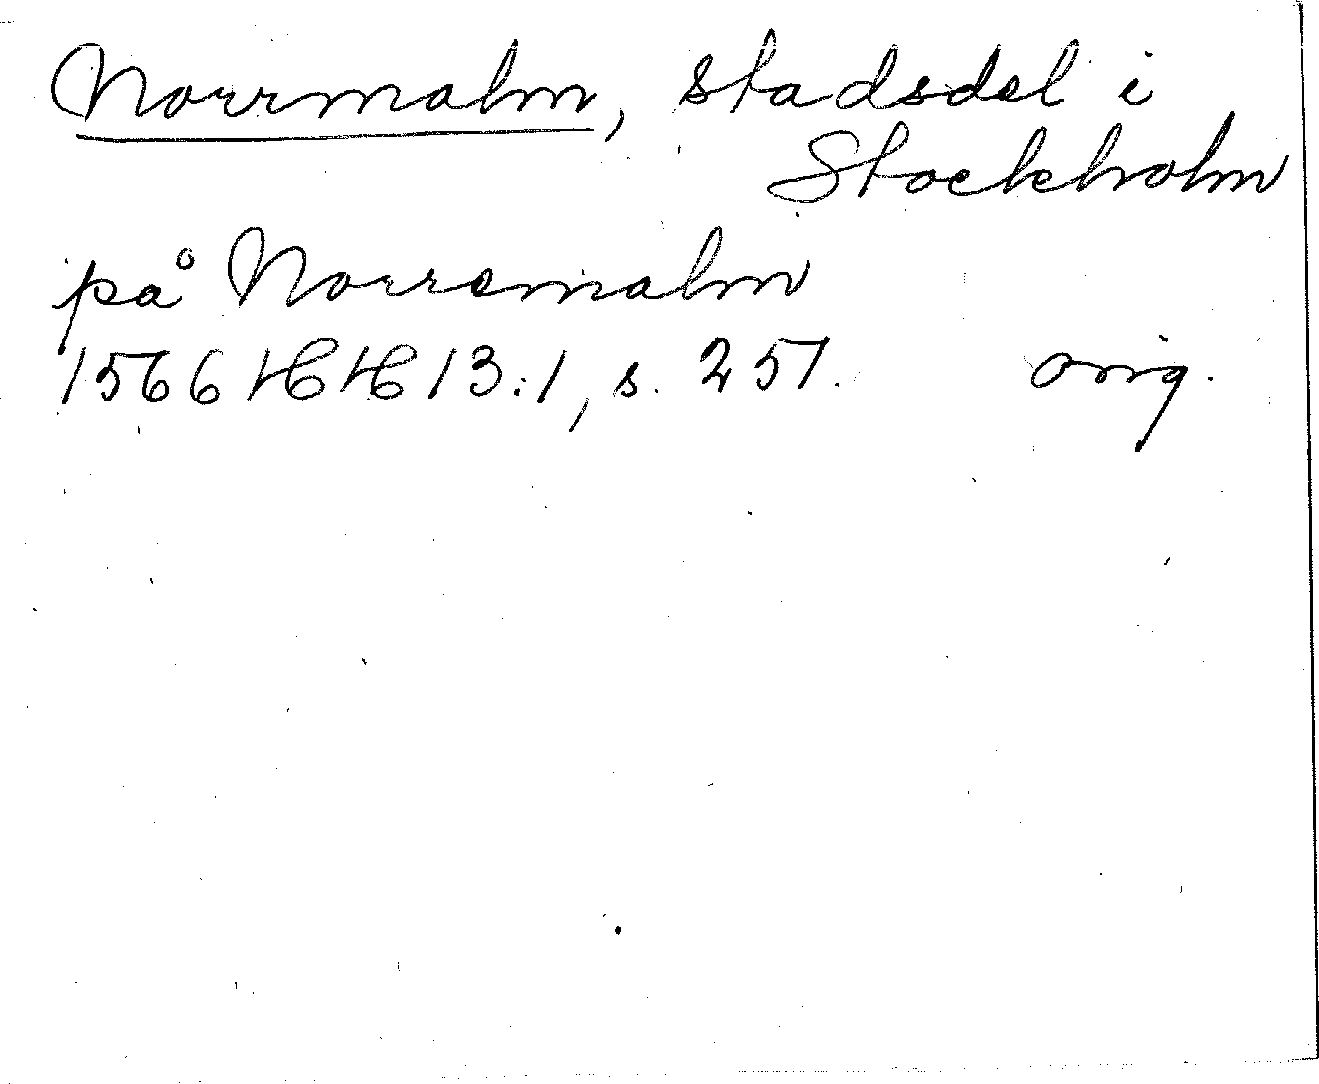 Norrmalm, stadsdel i
Stockholm
på Norremalm
1566 HH 13:1, s. 251. orig.